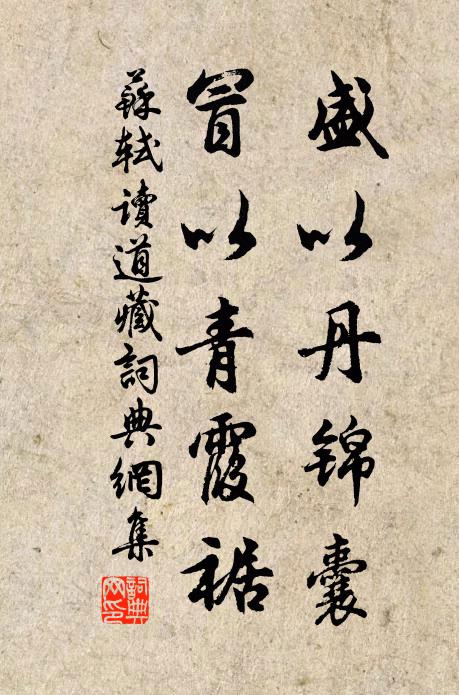 盛以丹錦囊
冒以青霞裾
蘇軾讀道藏詞典網集
詞典网印